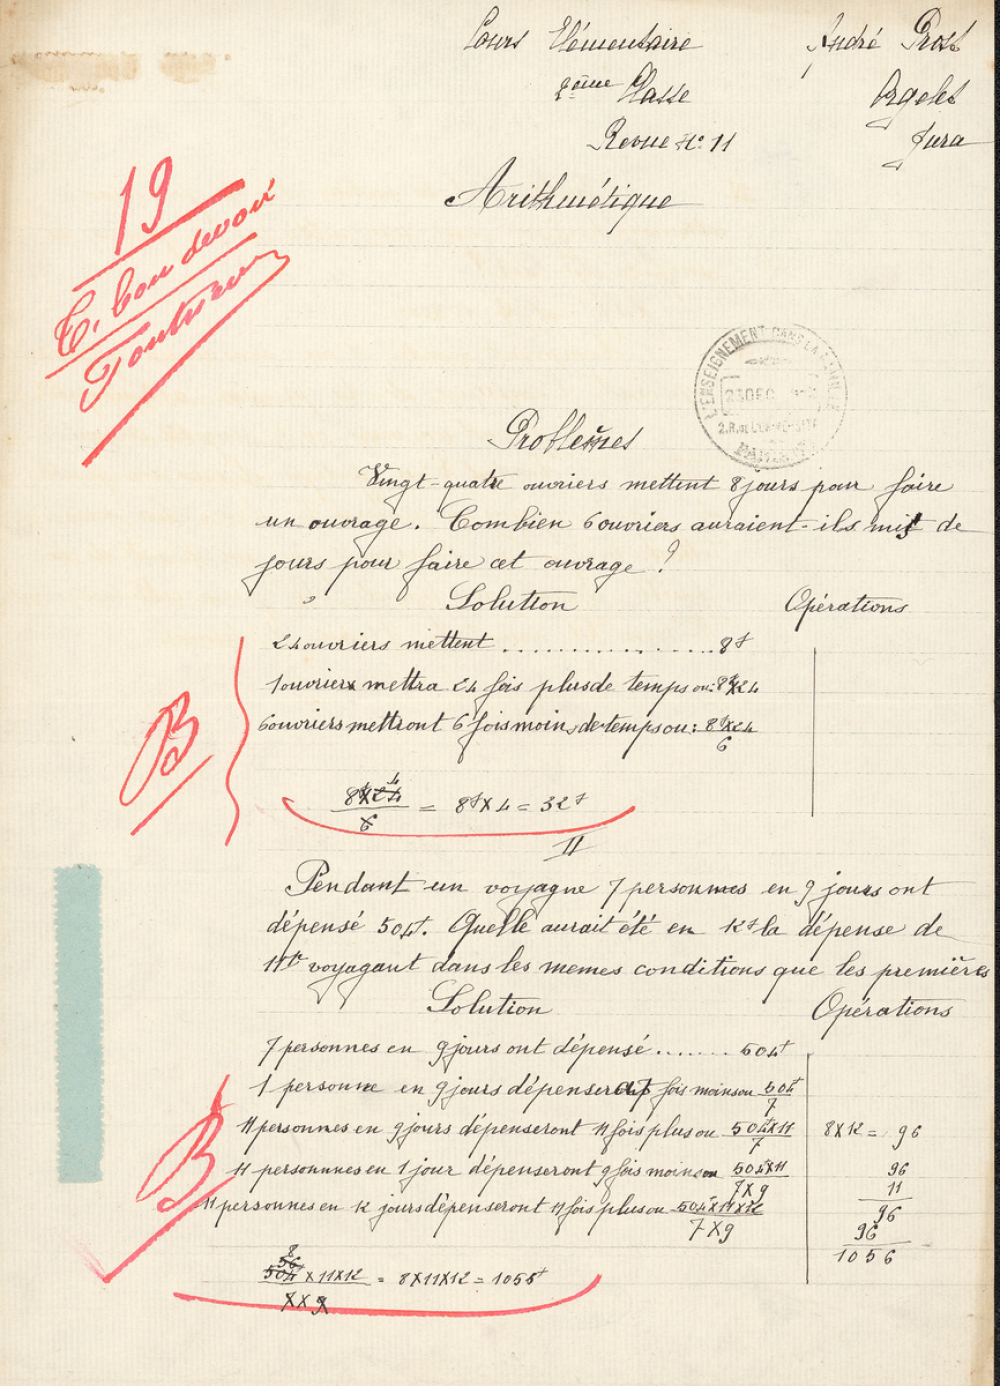 Cours Elémentaire
André Prost
2ème Classe
Orgelet
Revue No 11
Jura
Arithmétique
19
T. bon devoir
L'ENSEIGNEMENT DANS LA FAMILLE
23 DEC
PARIS
Problèmes
Vingt-quatre ouvriers mettent 8 jours pour faire
un ouvrage. Combien 6 ouvriers auraient-ils mis de
jours pour faire cet ouvrage ?
Solution
Opérations
24 ouvriers mettent .................. 8j
1 ouvrier mettra 24 fois plus de temps ou: 8j×24
6 ouvriers mettront 6 fois moins de temps ou: 8j×24
6
B
8j×24 4
6
= 8j×4 = 32j
II
Pendant un voyagne 7 personnes en 9 jours ont
dépensé 504f. Quelle aurait été en 12j la dépense de
11 voyagant dans les memes conditions que les premières
Solution
Opérations
7 personnes en 9 jours ont dépensé ........ 504f
1 personne en 9 jours dépensera 7 fois moins ou 504f
7
11 personnes en 9 jours dépenseront 11 fois plus ou 504f×11
7
8×12 = 96
11 personnnes en 1 jour dépenseront 9 fois moins ou 504f×11
7×9
96
11
11 personnes en 12 jours dépenseront 11 fois plus ou 504f×11×12
7×9
96
96
1056
B
8
56
504f×11×12 = 8×11×12 = 1056f
7×9